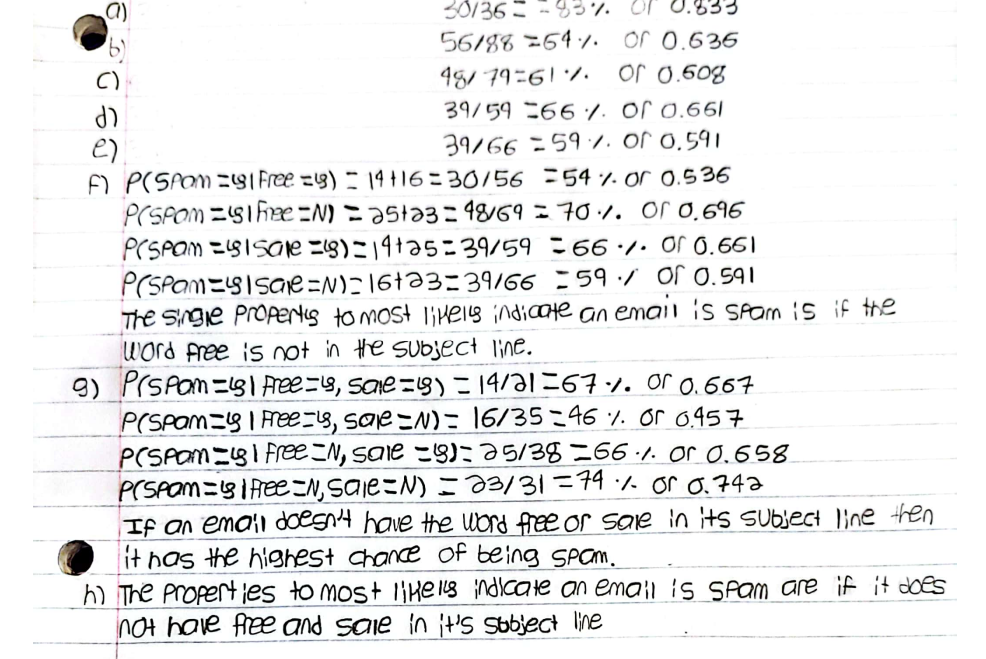 a) 30/36 = = 83%. or 0.833
b) 56/88 = 64%. or 0.636
c) 48/79 = 61%. or 0.608
d) 39/59 = 66%. or 0.661
e) 39/66 = 59%. or 0.591
f) P(spam=y|free=y) = 14+16=30/56 = 54% or 0.536
P(spam=y|free=N) = 25+23=48/69 = 70%. or 0.696
P(spam=y|sale=y)=14+25=39/59 = 66%. or 0.661
P(spam=y|sale=N)=16+23=39/66 = 59% or 0.591
The single property to most likely indicate an email is spam is if the
word free is not in the subject line.
g) P(spam=y|free=y, sale=y) = 14/21=67%. or 0.667
P(spam=y|free=y, sale=N)= 16/35=46% or 0.457
P(spam=y|free=N, sale=y)= 25/38=66%. or 0.658
P(spam=y|free=N, sale=N) = 23/31=74% or 0.742
If an email doesn't have the word free or sale in its subject line then
it has the highest chance of being spam.
h) The properties to most likely indicate an email is spam are if it does
not have free and sale in it's subject line